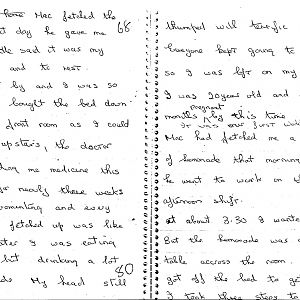 Mac fetched the
t day he gave me 68
tle said it was my
and to rest.
by and I was so
bought the bed down
front room as I could
upstairs, the doctor
me medicine this
nearly three weeks
vomiting and every
fetched up was like
I was eating
but drinking a lot
80
My head still
thumped will terrific
everyone kept going to
so I was left on my
I was 20 years old and
pregnant
months by this time
It was our first
Mac had fetched me a
of lemonade that morning
he went to work on
afternoon shift.
at about 3.30 I wanted
But the lemonade was
table across the room.
got off the bed to get
I took three steps to